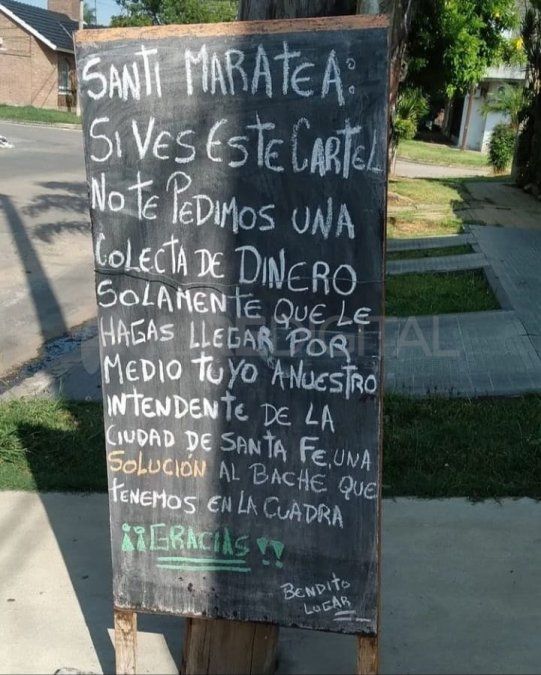 SANTI MARATEA:
SI VES ESTE CARTEL
NO TE PEDIMOS UNA
COLECTA DE DINERO
SOLAMENTE QUE LE
HAGAS LLEGAR POR
MEDIO TUYO A NUESTRO
INTENDENTE DE LA
CIUDAD DE SANTA FE, UNA
SOLUCIÓN AL BACHE QUE
TENEMOS EN LA CUADRA
¡¡GRACIAS!!
BENDITO
LUGAR
DIGITAL